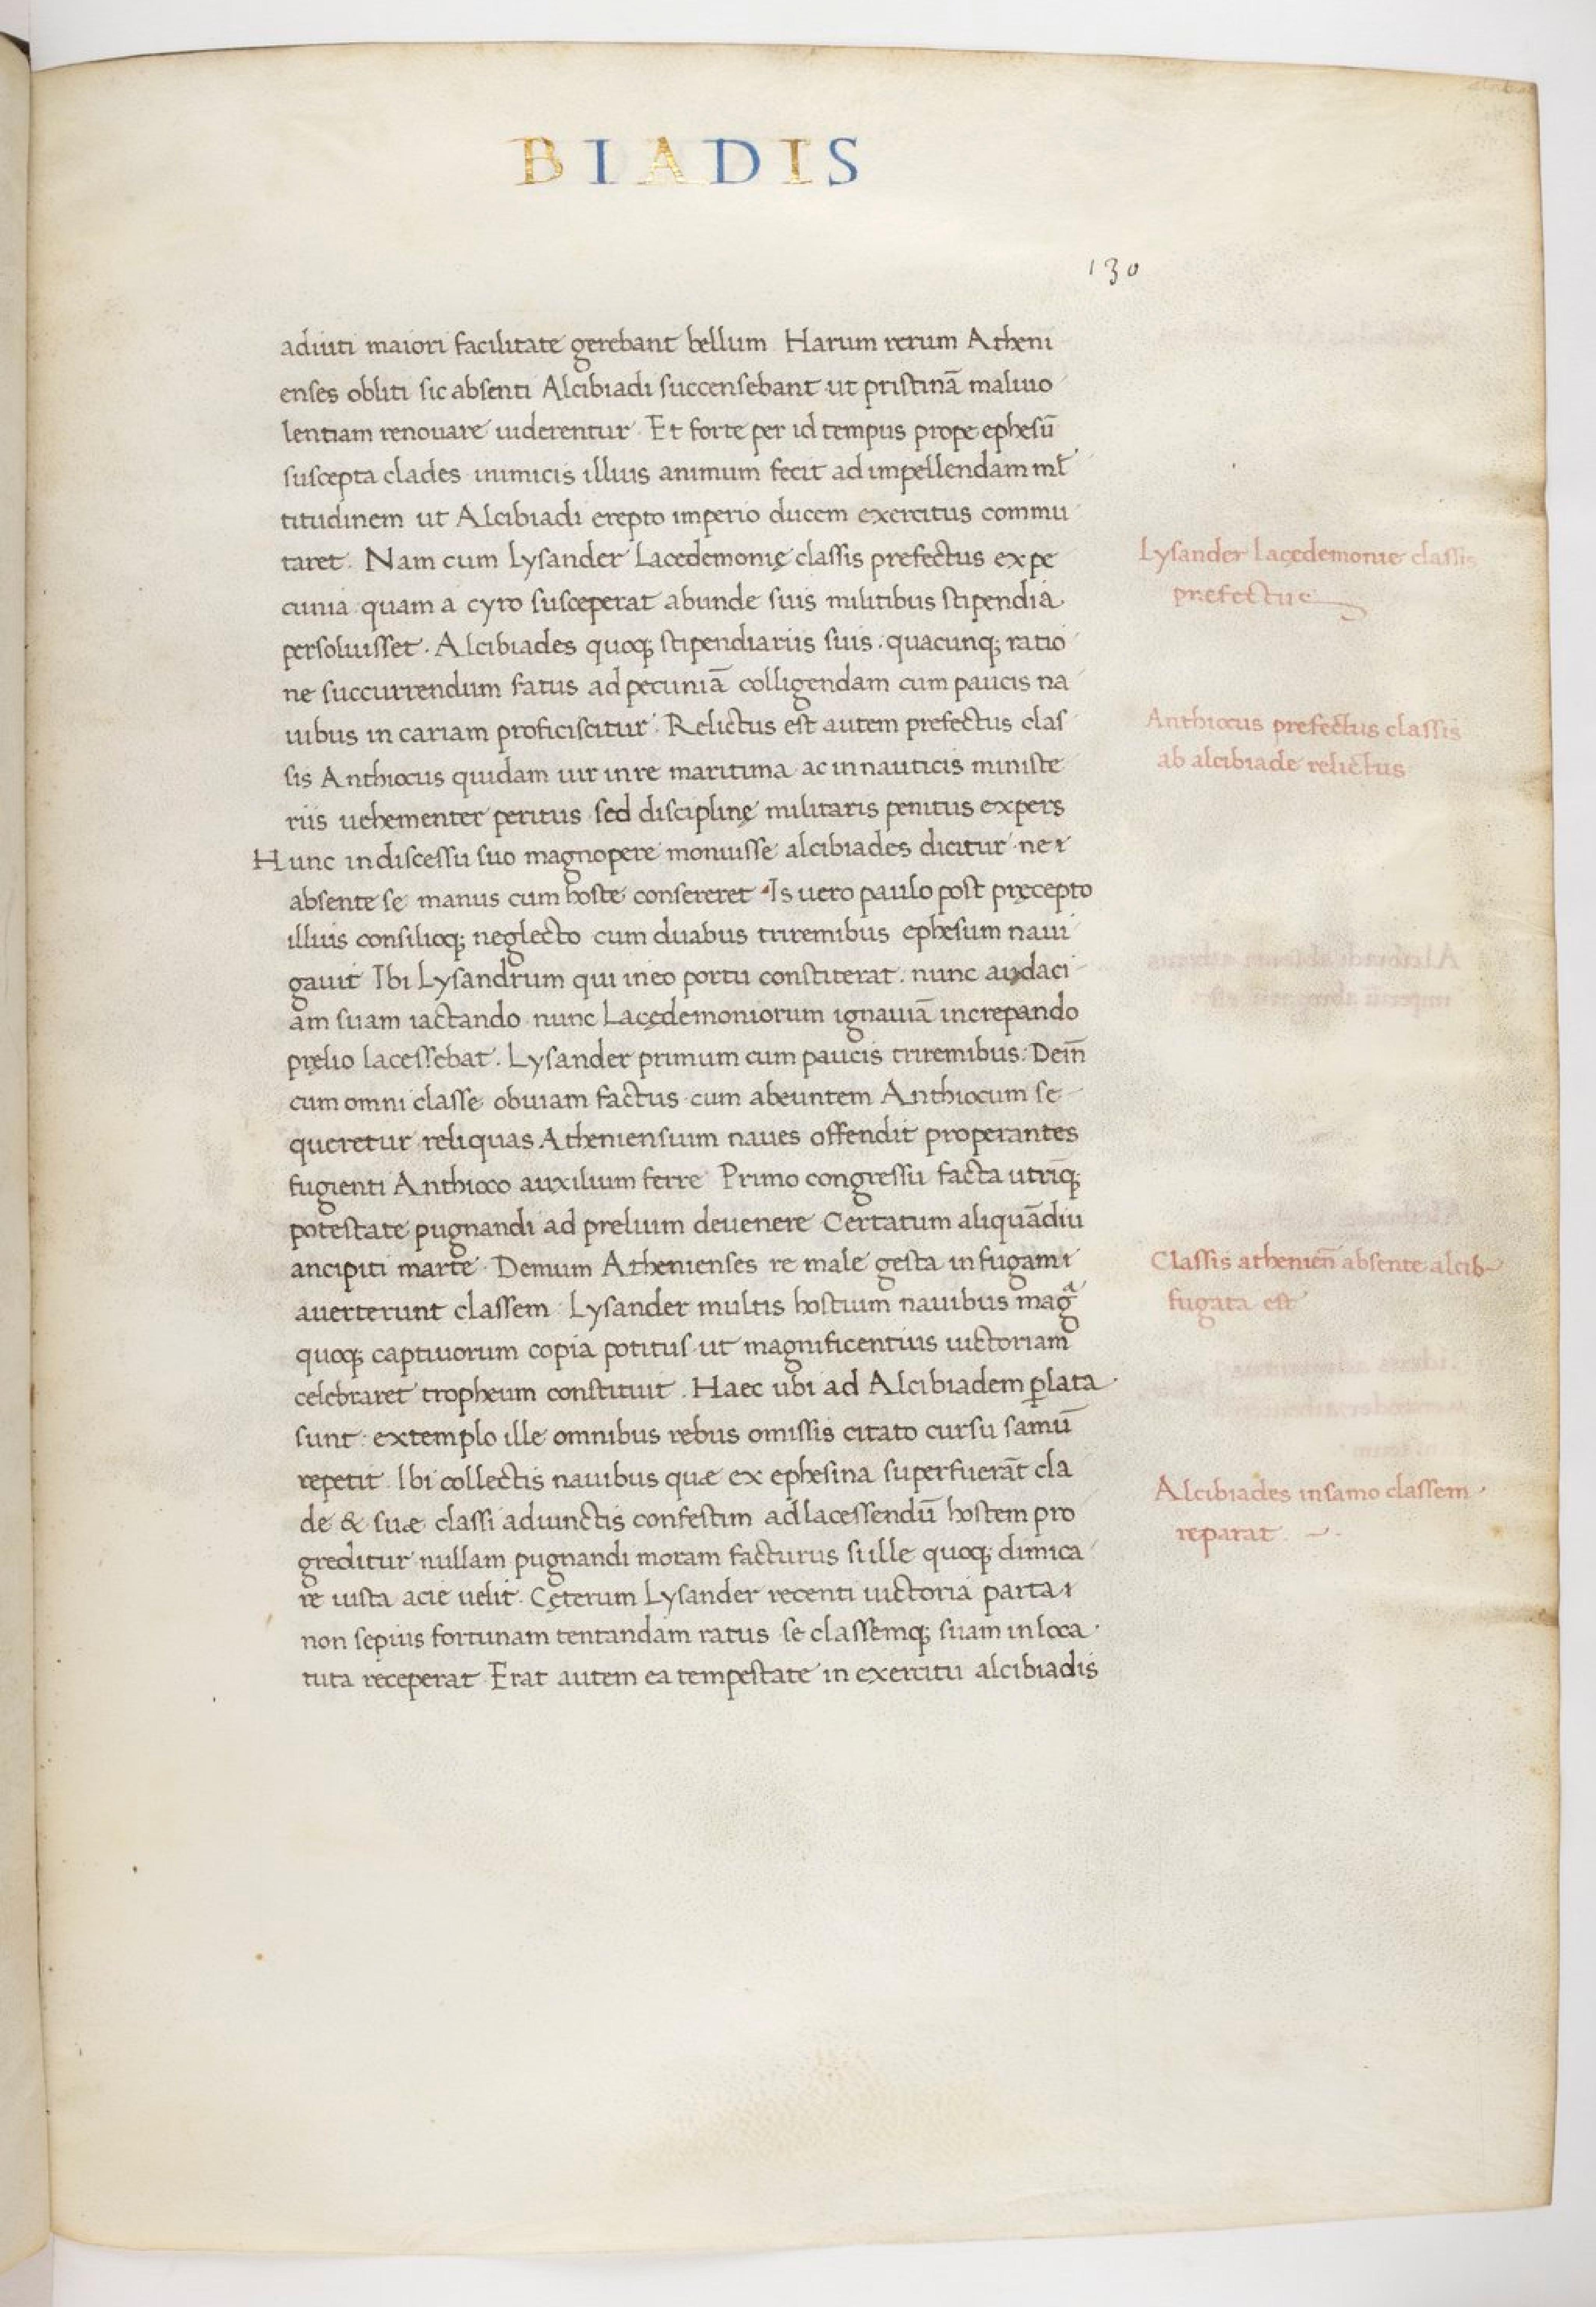 BIADIS
130
adiuti maiori facilitate gerebant bellum Harum rerum Atheni
enses obliti sic absenti Alcibiadi succensebant ut pristinā maliuo
lentiam renouare uiderentur. Et forte per id tempus prope ephesū
suscepta clades inimicis illius animum fecit ad impellendam ml̄
titudinem ut Alcibiadi erepto imperio ducem exercitus commu
taret. Nam cum Lysander Lacedemonię classis prefectus ex pe
cunia quam a cyro susceperat abunde suis militibus stipendia
persoluisset. Alcibiades quoq; stipendiariis suis: quacunq; ratio
ne succurrendum fatus ad pecuniā colligendam cum paucis na
uibus in cariam proficiscitur. Relictus est autem prefectus clas
sis Anthiocus quidam uir in re maritima ac in nauticis ministe
riis uehementer peritus sed disciplinę militaris penitus expers
Hunc in discessu suo magnopere monuisse alcibiades dicitur ne
absente se manus cum hoste consereret. Is uero paulo post pręcepto
illius consilioq; neglecto cum duabus triremibus ephesum naui
gauit Ibi Lysandrum qui in eo portu constiterat. nunc audaci
am suam iactando nunc Lacędemoniorum ignauiā increpando
pręlio lacessebat. Lysander primum cum paucis triremibus: Dein̄
cum omni classe obuiam factus cum abeuntem Anthiocum se
queretur reliquas Atheniensium naues offendit properantes
fugienti Anthioco auxilium ferre Primo congressu facta utriq;
potestate pugnandi ad prelium deuenere Certatum aliquādiu
ancipiti marte. Demum Athenienses re male gesta in fugam
auerterunt classem: Lysander multis hostium nauibus magᵃ
quoq; captiuorum copia potitus ut magnificentius uictoriam
celebraret tropheum constituit. Haec ubi ad Alcibiadem ꝑlata
sunt: extemplo ille omnibus rebus omissis citato cursu samū
repetit. Ibi collectis nauibus quæ ex ephesina superfuerāt cla
de & suæ classi adiunctis confestim ad lacessendū hostem pro
greditur nullam pugnandi moram facturus si ille quoq; dimica
re iusta acie uelit. Cęterum Lysander recenti uictoria parta
non sepius fortunam tentandam ratus se classemq; suam in loca
tuta receperat Erat autem ea tempestate in exercitu alcibiadis
Lysander Lacędemonie classis
prefectus
Anthiocus prefectus classis
ab alcibiade relictus
Classis athenien̄ absente alcib
fugata est
Alcibiades in samo classem
reparat